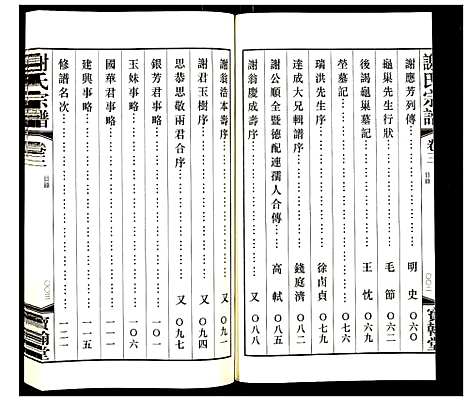 謝氏宗譜 卷三 目錄 〇〇二 寶翰堂
謝應芳列傳 明史 〇六〇
龜巢先生行狀 毛節 〇六二
後謁龜巢墓記 王忱 〇六九
塋墓記 〇七六
瑞洪先生序 徐卣貞 〇七八
達成大兄輯譜序 錢庭濟 〇八二
謝公順全暨德配連孺人合傳 高軾 〇八五
謝翁慶成壽序 又 〇八八
謝翁浩本壽序 又 〇九一
謝君玉樹序 又 〇九四
思恭思敬兩君合序 又 〇九七
銀芳君事略 一〇一
玉妹事略 一〇六
國華君事略 一一二
建興事略 一一五
修譜名次 一二一
謝氏宗譜 卷三 目錄 〇〇三 寶翰堂